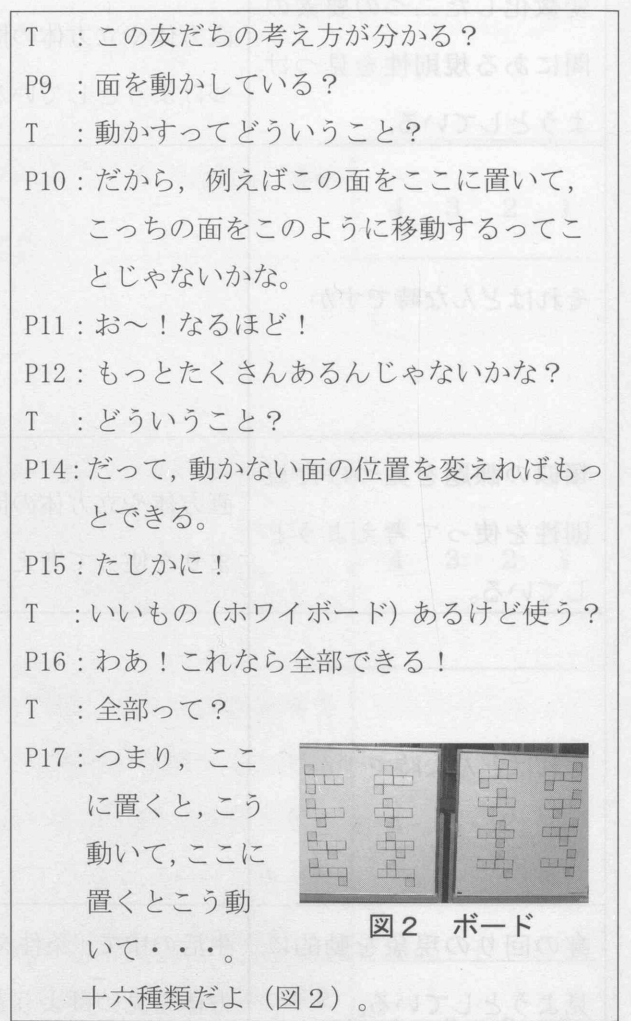 T ：この友だちの考え方が分かる？
P9 ：面を動かしている？
T ：動かすってどういうこと？
P10：だから，例えばこの面をここに置いて，
こっちの面をこのように移動するってこ
とじゃないかな。
P11：お～！なるほど！
P12：もっとたくさんあるんじゃないかな？
T ：どういうこと？
P14：だって，動かない面の位置を変えればもっ
とできる。
P15：たしかに！
T ：いいもの（ホワイボード）あるけど使う？
P16：わあ！これなら全部できる！
T ：全部って？
P17：つまり，ここ
に置くと，こう
動いて，ここに
置くとこう動
いて・・・。
十六種類だよ（図2）。
図2 ボード